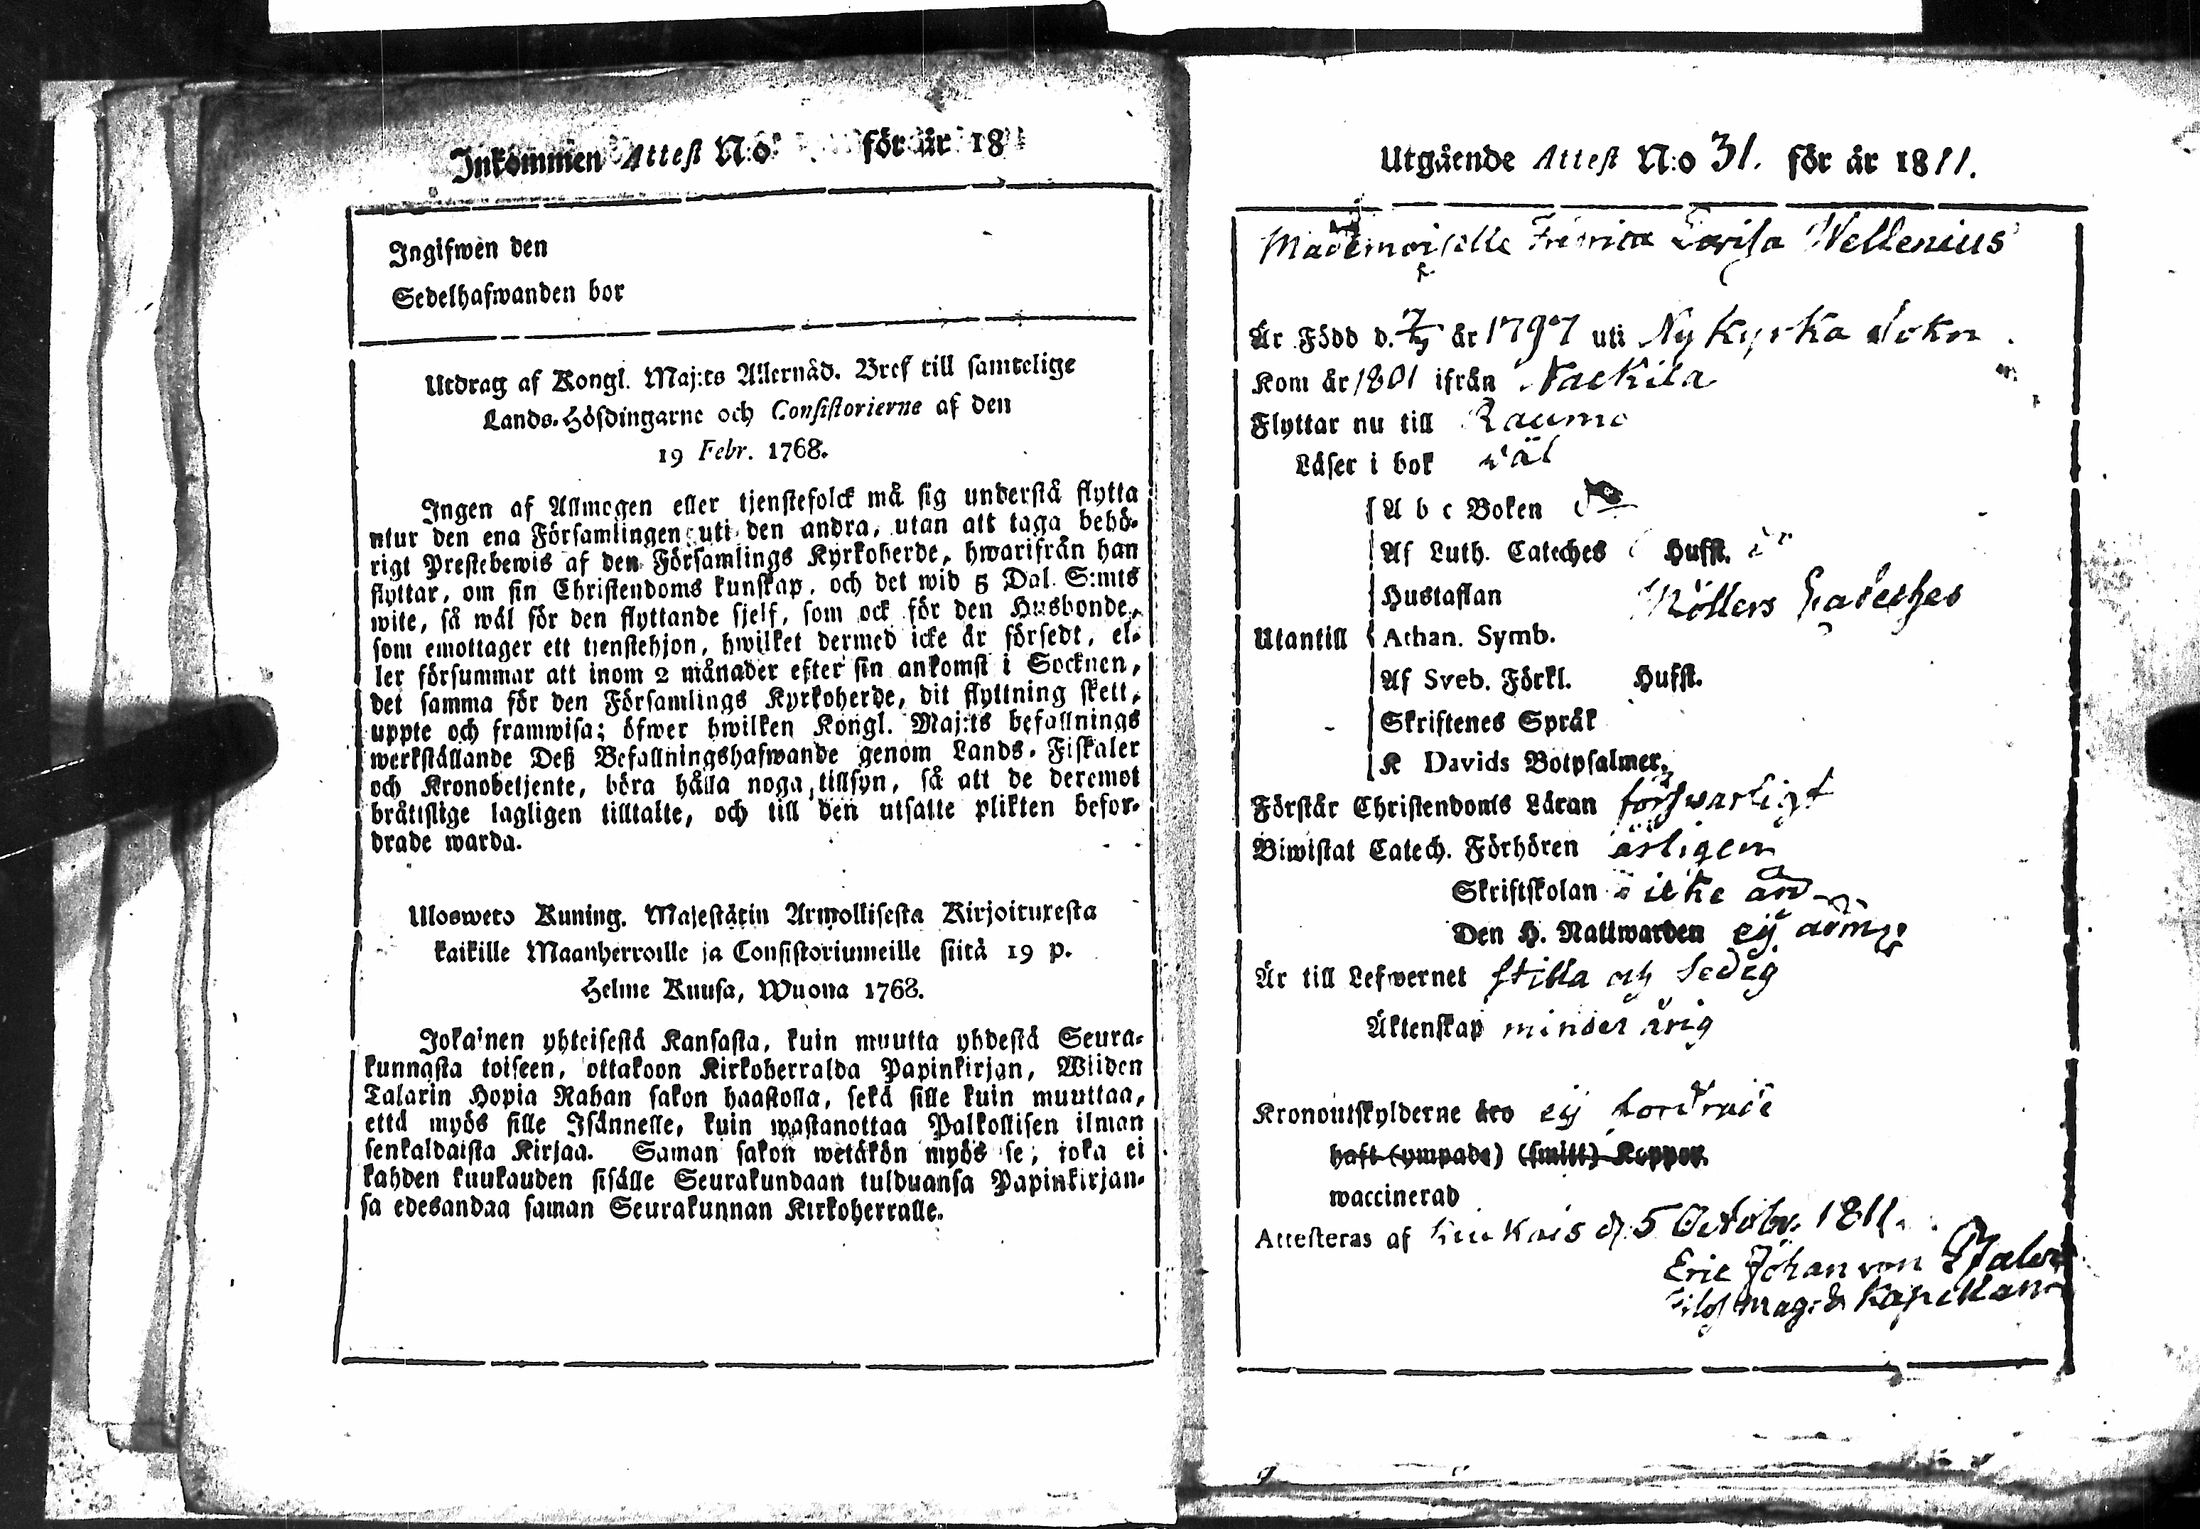 Inkommen Attest N:o för år 18
Ingifwen den
Sedelhafwanden bor
Utdrag af Kongl. Maj:ts Allernåd. Bref till samtelige
Lands-Höfdingarne och Consistorierne af den
19 Febr. 1768.
Ingen af Allmogen eller tjenstefolck må sig understå flytta
utur den ena Församlingen uti den andra, utan att taga behö-
rigt Prestebewis af den Församlings Kyrkoherde, hwarifrån han
flyttar, om sin Christendoms kunskap, och det wid 5 Dal. S:mts
wite, så wäl för den flyttande sjelf, som ock för den Husbonde,
som emottager ett tjenstehjon, hwilket dermed icke är försedt, el-
ler försummar att inom 2 månader efter sin ankomst i Socknen,
det samma för den Församlings Kyrkoherde, dit flyttning skett,
uppte och framwisa; öfwer hwilken Kongl. Maj:ts befallnings
werkställande Deß Befallningshafwande genom Lands-Fiskaler
och Kronobetjente, böra hålla noga tillsyn, så att de deremot
bråttslige lagligen tilltalte, och till den utsatte plikten befor-
drade warda.
Ulosweto Kuning. Majestätin Armollisesta Kirjoituxesta
kaikille Maanherroille ja Consistoriumeille siitä 19 p.
Helme Kuusa, Wuona 1768.
Jokainen yhteisestä Kansasta, kuin muutta yhdestä Seura-
kunnasta toiseen, ottakoon Kirkoherralda Papinkirjan, Wiiden
Talarin Hopia Rahan sakon haastolla, sekä sille kuin muuttaa,
että myös sille Isännelle, kuin wastanottaa Palkollisen ilman
senkaldaista Kirjaa. Saman sakon wetäkön myös se, joka ei
kahden kuukauden sisälle Seurakundaan tulduansa Papinkirjan-
sa edesandaa saman Seurakunnan Kirkoherralle.
Utgående Attest N:o 31. för år 1811.
Mademoiselle Fredrica Lovisa Wellenius
Är Född d. år 1797 uti Nykyrka Sokn
Kom år 1801 ifrån Nackila
Flyttar nu till Raumo
Läser i bok wäl
A b c Boken
Af Luth. Cateches Husfl.
Hustaflan Möllers Cateches
Utantill Athan. Symb.
Af Sveb. Förkl. Husfl.
Skriftenes Språk
K Davids Botpsalmer
Förstår Christendoms Läran försvarligt
Biwistat Catech. Förhören årligen
Skriftskolan icke än
Den H. Nattwarden ej ännu
Är till Lefwernet stilla och sedig
Äktenskap minderårig
Kronoutskylderne äro ej fordrade
haft (ympade) (smitt) Koppor.
waccinerad
Attesteras af Kiukais d. 5 October 1811.
Eric Johan von Pfaler
Filos mag: & Kapellan